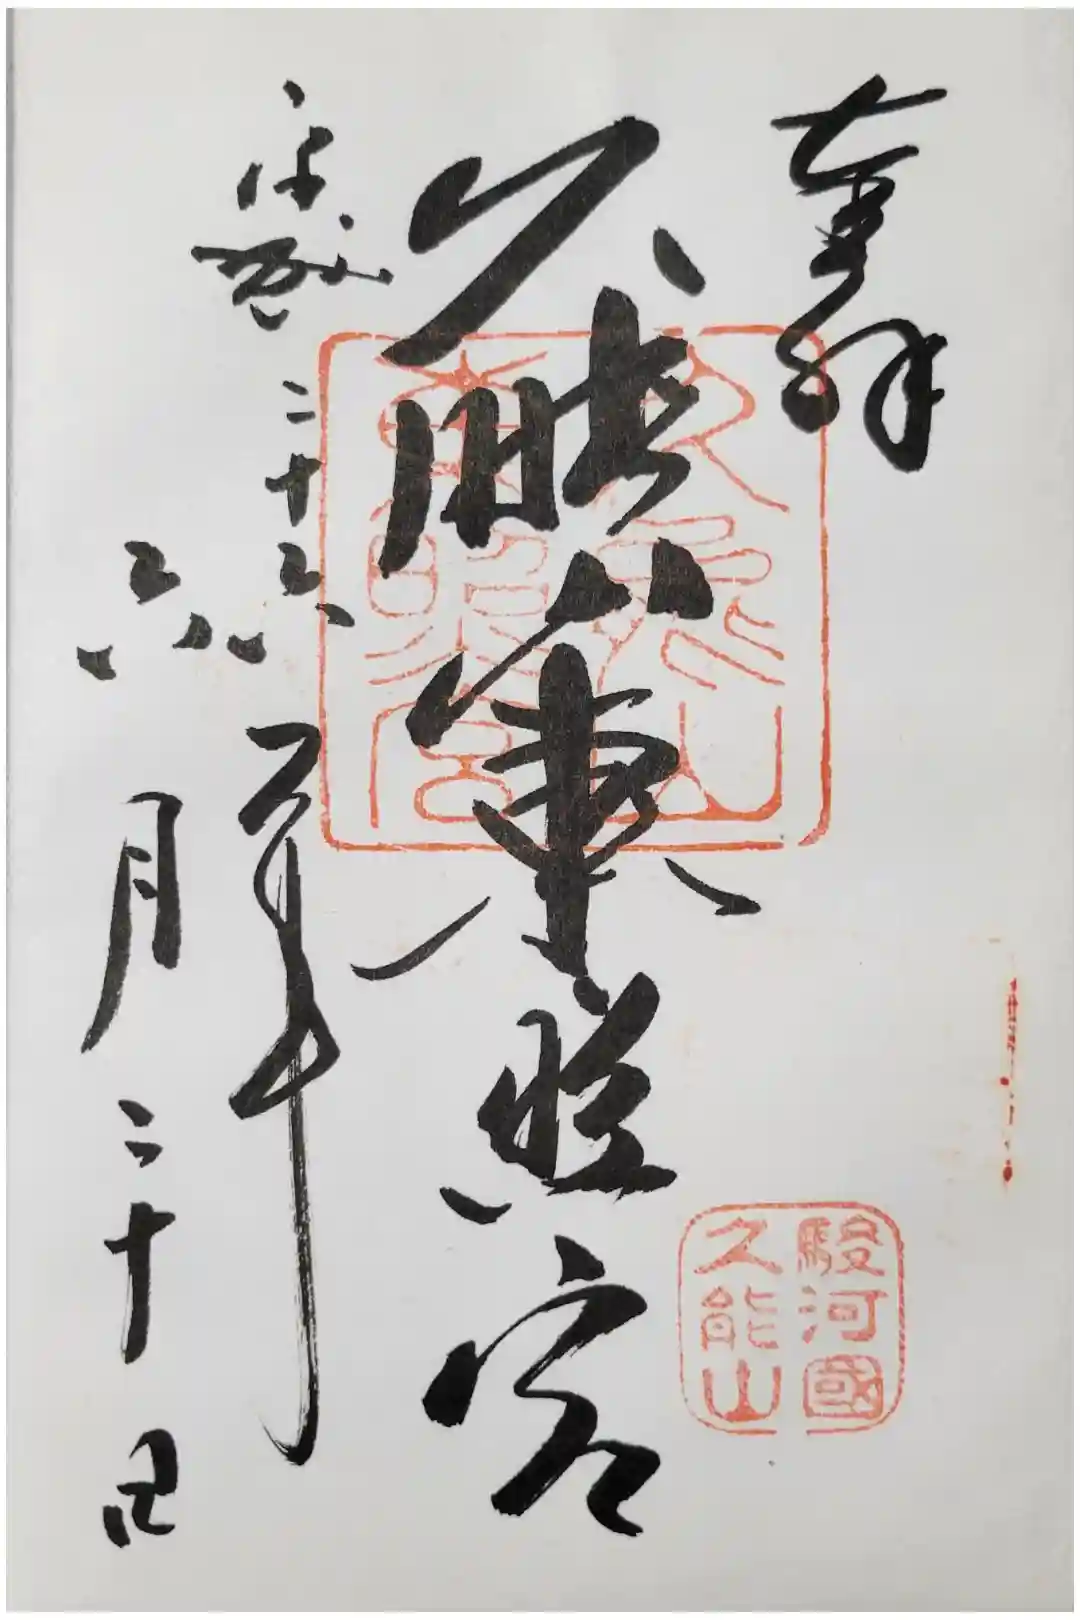 奉拝
駿河國
久能山
久能山東照宮
久能山
東照宮
平成二十六年
六月二十日